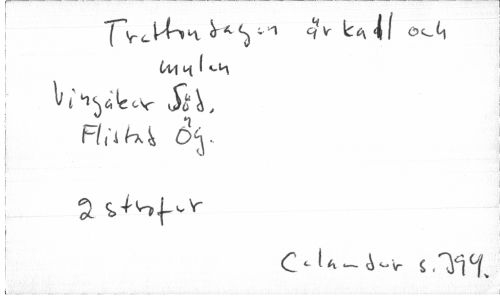 Trettondagen är kall och
mulen
Vingåker Söd.
Flistad Ög.
2 strofer
Celander s. 394.